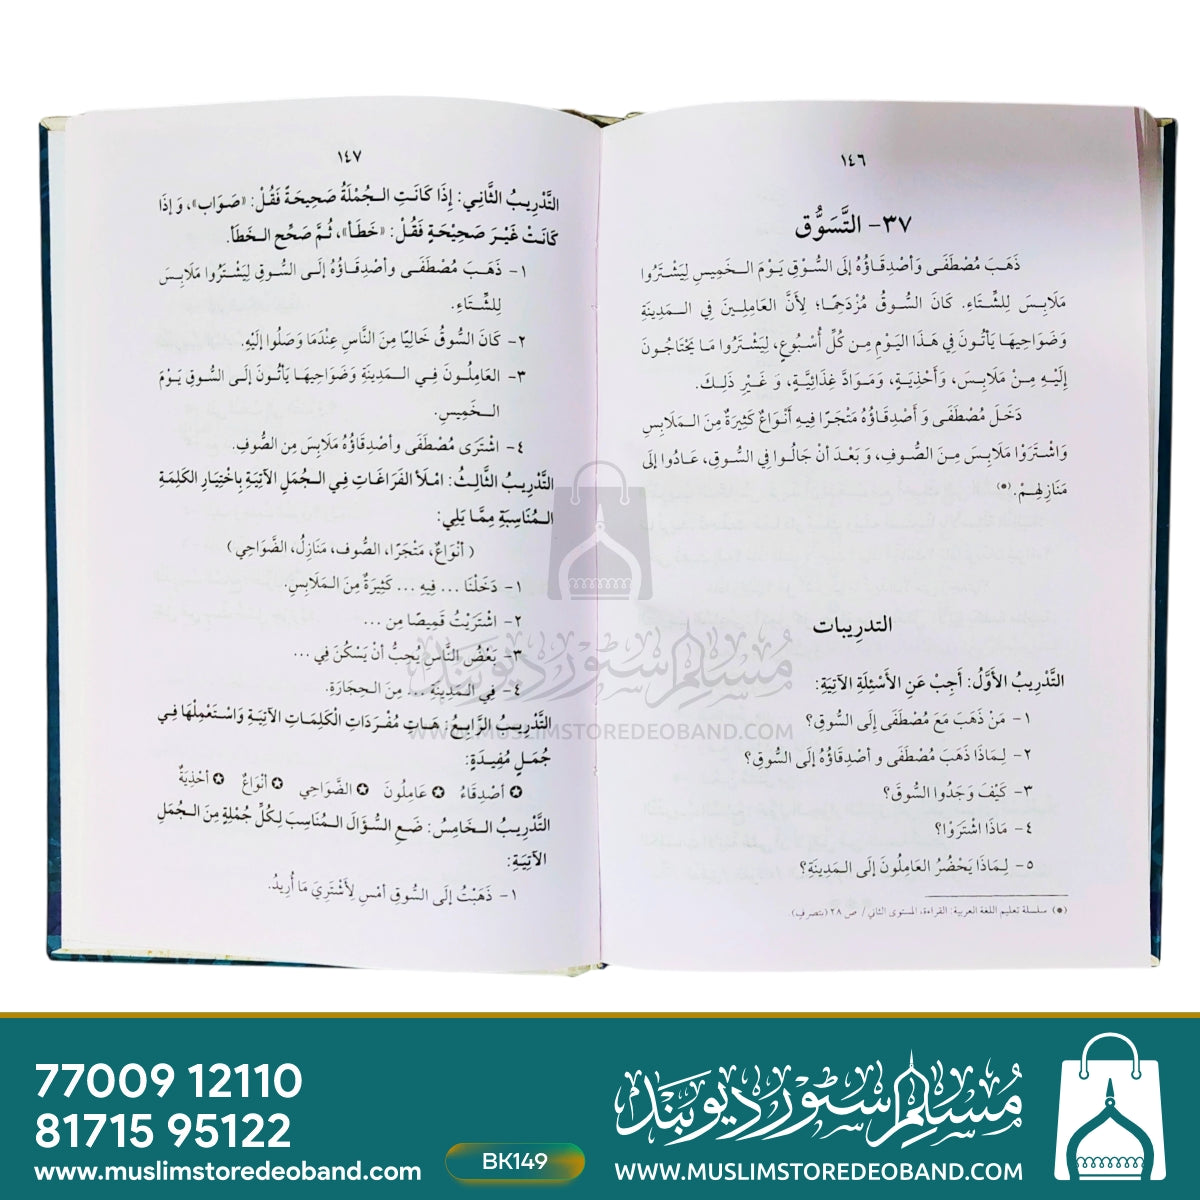 ١٤٦
٣٧- التَّسَوُّق
ذَهَبَ مُصْطَفَى وَأصْدِقَاؤُهُ إلَى السُّوْقِ يَوْمَ الـخَمِيسِ لِيَشْتَرُوا
مَلَابِسَ لِلشِّتَاءِ. كَانَ السُّوقُ مُزْدَحِمًا؛ لِأَنَّ العَامِلِينَ فِي الـمَدِينَةِ
وَضَوَاحِيهَا يَأْتُونَ فِي هَذَا اليَوْمِ مِن كُلِّ أُسْبُوعٍ، لِيَشْتَرُوا مَا يَحْتَاجُونَ
إلَيْهِ مِنْ مَلَابِسَ، وَأَحْذِيَةٍ، وَمَوَادَّ غِذَائِيَّةٍ، وَ غَيْرِ ذَلِكَ.
دَخَلَ مُصْطَفَى وَ أَصْدِقَاؤُهُ مَتْجَرًا فِيهِ أَنْوَاعٌ كَثِيرَةٌ مِنَ الـمَلَابِسِ
وَاشْتَرَوْا مَلَابِسَ مِنَ الصُّوفِ، وَ بَعْدَ أنْ جَالُوا فِي السُّوقِ، عَادُوا إلَى
مَنَازِلِهِمْ.(*)
التدرِيبات
التَّدْرِيبُ الأوَّلُ: أَجِبْ عَنِ الأَسْئِلَةِ الآتِيَةِ:
١- مَنْ ذَهَبَ مَعَ مُصْطَفَى إلَى السُّوقِ؟
٢- لِـمَاذَا ذَهَبَ مُصْطَفَى و أصْدِقَاؤُهُ إلَى السُّوقِ؟
٣- كَيْفَ وَجَدُوا السُّوقَ؟
٤- مَاذَا اشْتَرَوْا؟
٥- لِـمَاذَا يَحْضُرُ العَامِلُونَ إلَى الـمَدِينَةِ؟
(*) سلسلة تعليم اللغة العربية: القراءة، المستوى الثاني/ ص ٢٨ (بتصرف).
١٤٧
التَّدْرِيبُ الثَّانِي: إذَا كَانَتِ الـجُمْلَةُ صَحِيحَةً فَقُلْ: «صَوَاب»، وَ إذَا
كَانَتْ غَيْرَ صَحِيْحَةٍ فَقُلْ: «خَطَأ»، ثُمَّ صَحِّحِ الـخَطَأ.
١- ذَهَبَ مُصْطَفَى وأصْدِقَاؤُهُ إلَى السُّوقِ لِيَشْتَرُوا مَلَابِسَ
لِلشِّتَاءِ.
٢- كَانَ السُّوقُ خَالِيًا مِنَ النَّاسِ عِنْدَمَا وَصَلُوا إلَيْهِ.
٣- العَامِلُونَ فِي الـمَدِينَةِ وَضَوَاحِيهَا يَأْتُونَ إلَى السُّوقِ يَوْمَ
الـخَمِيسِ.
٤- اشْتَرَى مُصْطَفَى وأصْدِقَاؤُهُ مَلَابِسَ مِن الصُّوفِ.
التَّدْرِيبُ الثَّالِثُ: امْلَأ الفَرَاغَاتِ فِي الـجُمَلِ الآتِيَةِ بِاخْتِيَارِ الكَلِمَةِ
الـمُنَاسِبَةِ مِمَّا يَلِي:
( أنْوَاعٌ، مَتْجَرًا، الصُّوف، مَنَازِلُ، الضَّوَاحِي )
١- دَخَلْنَا ... فِيهِ ... كَثِيرَةٌ مِنَ الـمَلَابِسِ.
٢- اشْتَرَيْتُ قَمِيصًا مِن ...
٣- بَعْضُ النَّاسِ يُحِبُّ أنْ يَسْكُنَ فِي ...
٤- فِي الـمَدِينَةِ ... مِنَ الـحِجَارَةِ.
التَّدْرِيبُ الرَّابِعُ: هَاتِ مُفْرَدَاتِ الْكَلِمَاتِ الآتِيَةِ وَاسْتَعْمِلْهَا فِي
جُمَلٍ مُفِيدَةٍ:
✪ أصْدِقَاءُ ✪ عَامِلُونَ ✪ الضَّوَاحِي ✪ أنْوَاعٌ ✪ أحْذِيَةٌ
التَّدْرِيبُ الـخَامِسُ: ضَعِ السُّؤَالَ الـمُنَاسِبَ لِكُلِّ جُمْلَةٍ مِنَ الـجُمَلِ
الآتِيَةِ:
١- ذَهَبْتُ إلَى السُّوقِ أمْسِ لِأَشْتَرِيَ مَا أُرِيدُ.
مسلم سٹور دیوبند
WWW.MUSLIMSTOREDEOBAND.COM
77009 12110
81715 95122
www.muslimstoredeoband.com
BK149
مسلم سٹور دیوبند
WWW.MUSLIMSTOREDEOBAND.COM